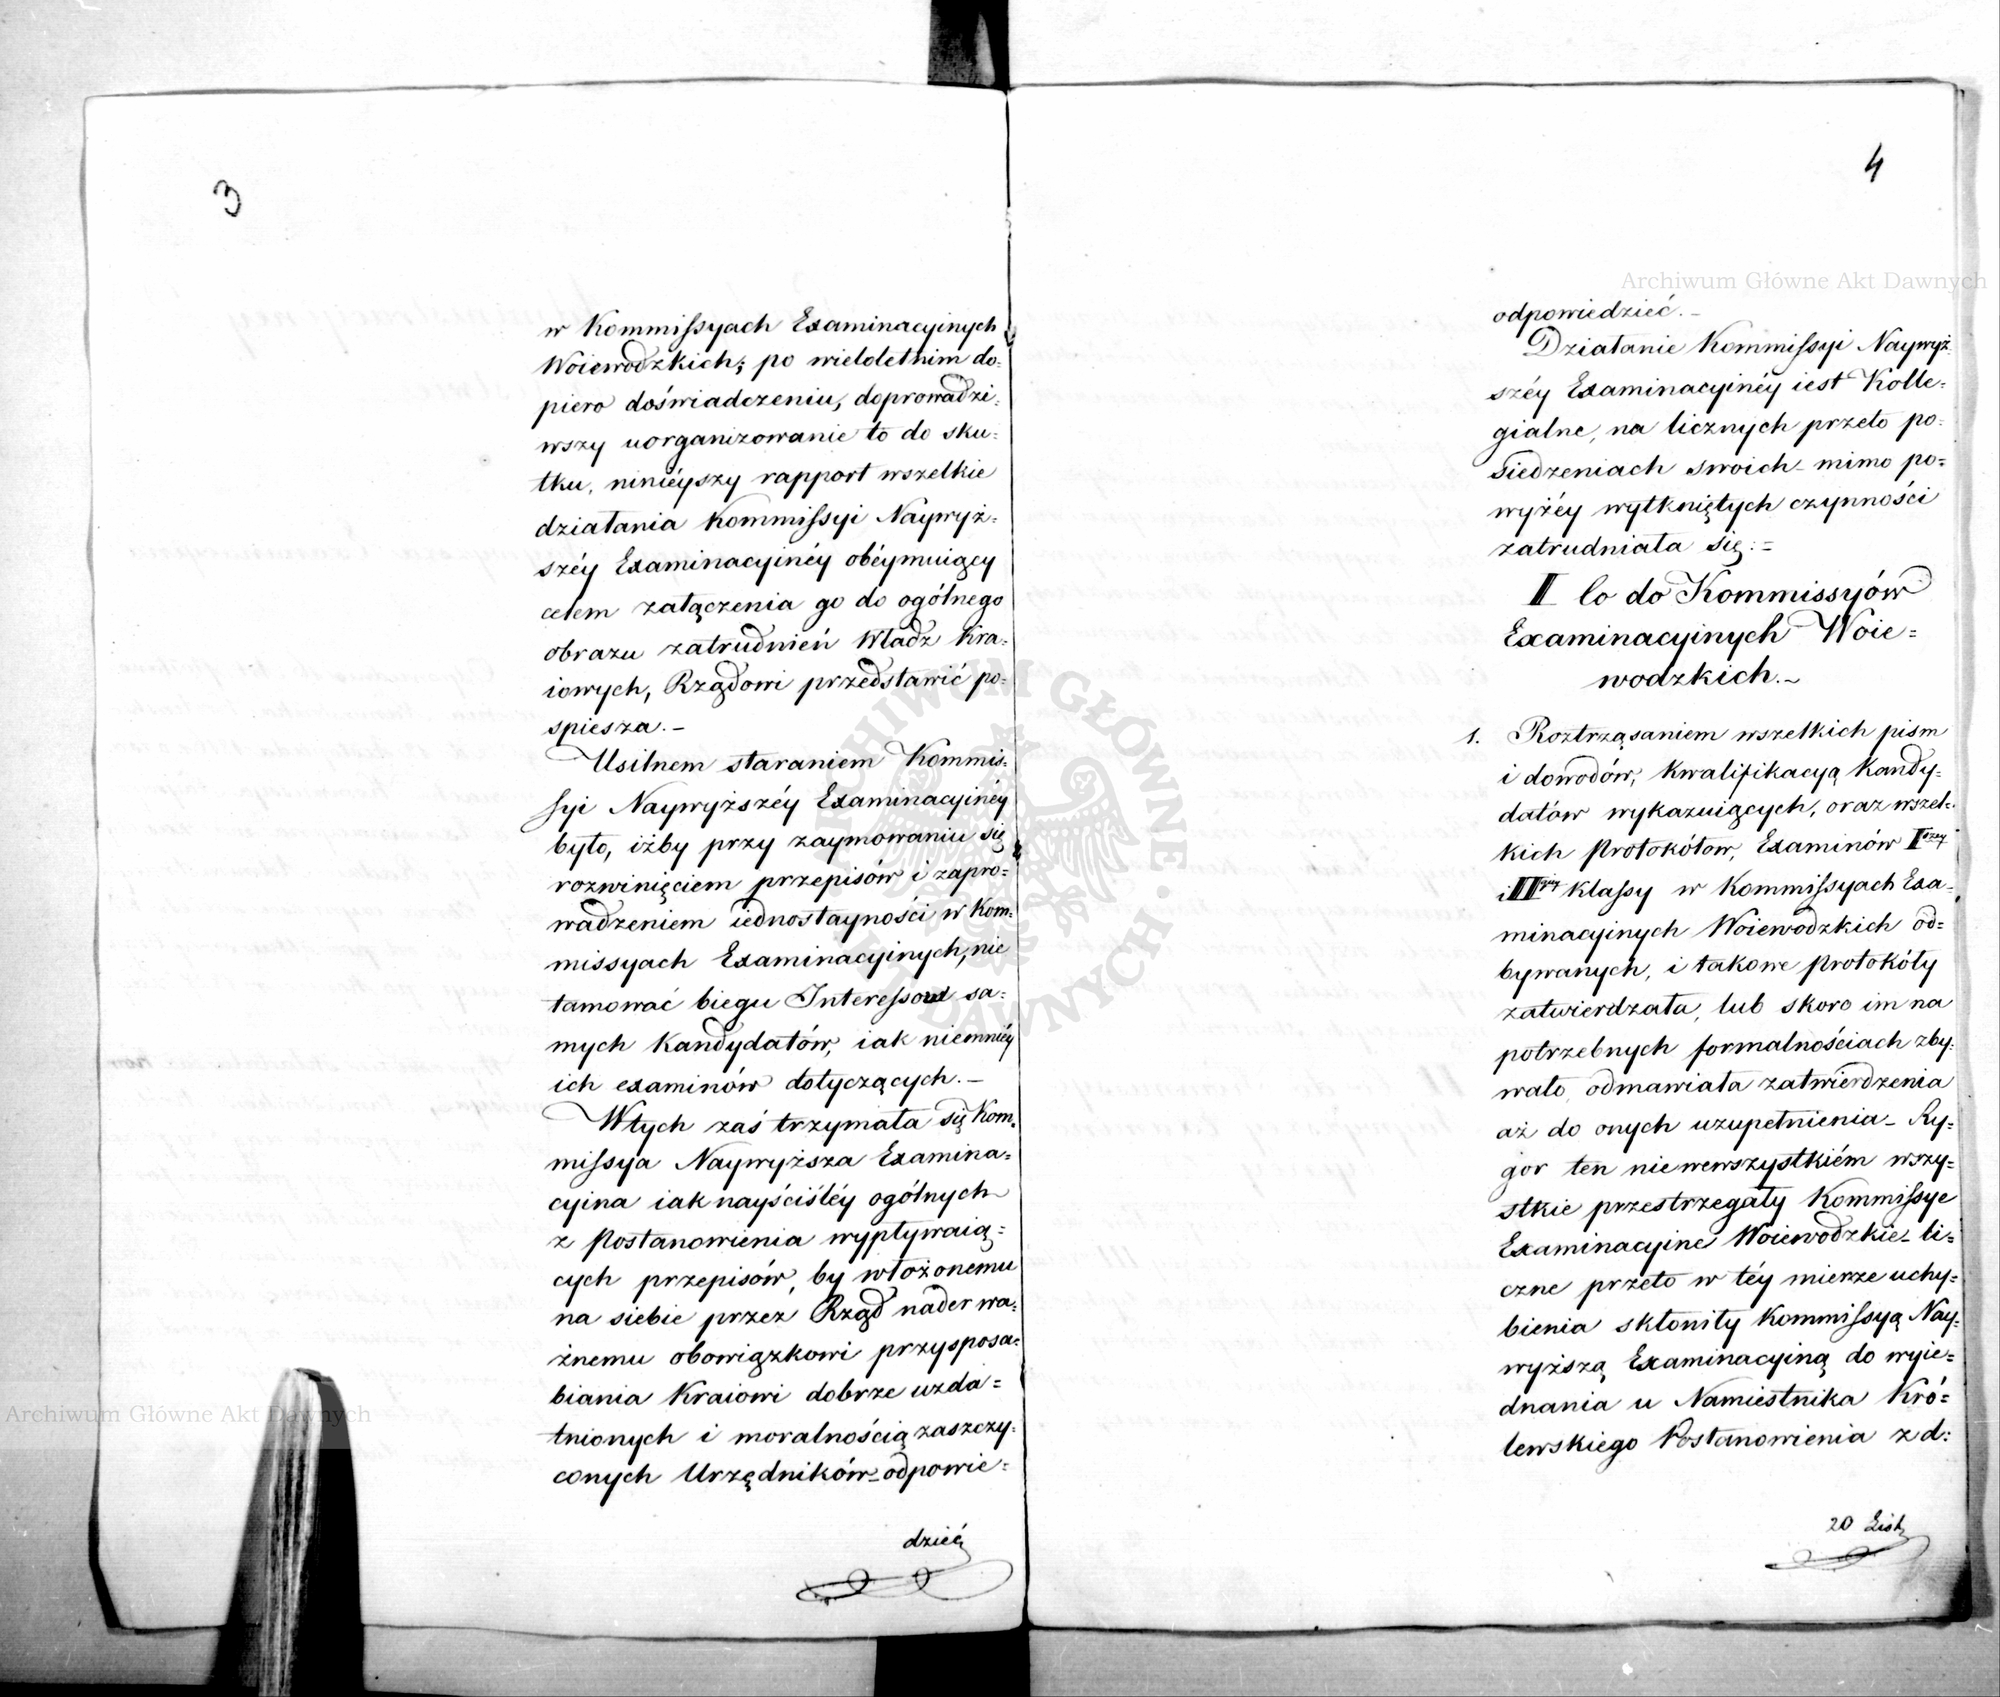 3
w Kommiſsyach Examinacyinych
Woiewodzkich; po wieloletnim do=
piero doświadczeniu, doprowadzi=
wszy uorganizowanie to do sku=
tku, ninieyszy rapport wszelkie
działania Kommiſsyi Naywyż=
széy Examinacyinéy obéymuiący
celem załączenia go do ogólnego
obrazu zatrudnień Władz Kra=
iowych, Rządowi przedstawić po=
spiesza. –
Usilnem staraniem Kommis=
ſyi Naywyższéy Examinacyinéy
było, iżby przy zaymowaniu się
rozwinięciem przepisów i zapro=
wadzeniem iednostayności w Kom=
missyach Examinacyinych, nie
tamować biegu Intereſsow sa=
mych Kandydatów, iak niemniéy
ich examinów dotyczących. –
W tych zaś trzymała się Kom=
miſsya Naywyższa Examina=
cyina iak nayściśléy ogólnych
z Postanowienia wypływaią=
cych przepisów, by włożonemu
na siebie przez Rząd nader wa=
żnemu obowiązkowi przysposa=
biania Kraiowi dobrze uzda=
tnionych i moralnością zaszczy=
conych Urzędników – odpowie=
dzieć
4
odpowiedzieć. –
Działanie Kommiſsyi Naywyż=
széy Examinacyinéy iest Kolle=
gialne, na licznych przeto po=
siedzeniach swoich – mimo po=
wyżéy wytkniętych czynności
zatrudniała się: =
II Co do Kommissyów
Examinacyinych Woie=
wodzkich. –
1. Roztrząsaniem wszelkich pism
i dowodów, kwalifikacyą Kandy=
datów wykazuiących, oraz wszel=
kich Protokółow, Examinów Iszey
i IIgiey klaſsy w Kommiſsyach Exa=
minacyinych Woiewodzkich od=
bywanych, i takowe protokóły
zatwierdzała, lub skoro im na
potrzebnych formalnościach zby=
wało, odmawiała zatwierdzenia
aż do onych uzupełnienia – Ry=
gor ten niewewszystkiém wszy=
stkie przestrzegały Kommiſsye
Examinacyine Woiewodzkie – li=
czne przeto w téy mierze uchy=
bienia skłoniły Kommiſsyą Nay=
wyższą Examinacyiną do wyie=
dnania u Namiestnika Kró=
lewskiego Postanowienia z d:
20 List
Archiwum Główne Akt Dawnych
Archiwum Główne Akt Dawnych
ARCHIWUM GŁÓWNE AKT DAWNYCH